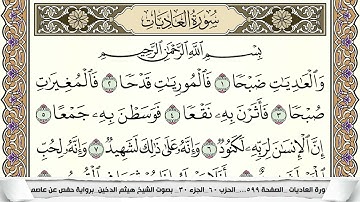 سُورَةُ العَادِيَاتِ
بِسْمِ اللَّهِ الرَّحْمَٰنِ الرَّحِيمِ
وَالْعَٰدِيَٰتِ ضَبْحًا ١ فَالْمُورِيَٰتِ قَدْحًا ٢ فَالْمُغِيرَٰتِ
صُبْحًا ٣ فَأَثَرْنَ بِهِۦ نَقْعًا ٤ فَوَسَطْنَ بِهِۦ جَمْعًا ٥
إِنَّ الْإِنسَٰنَ لِرَبِّهِۦ لَكَنُودٌ ٦ وَإِنَّهُۥ عَلَىٰ ذَٰلِكَ لَشَهِيدٌ ٧ وَإِنَّهُۥ لِحُبِّ
ورة العاديات.. الصفحة ٥٩٩... الحزب ٦٠.. الجزء ٣٠.. بصوت الشيخ هيثم الدخين.. برواية حفص عن عاصم